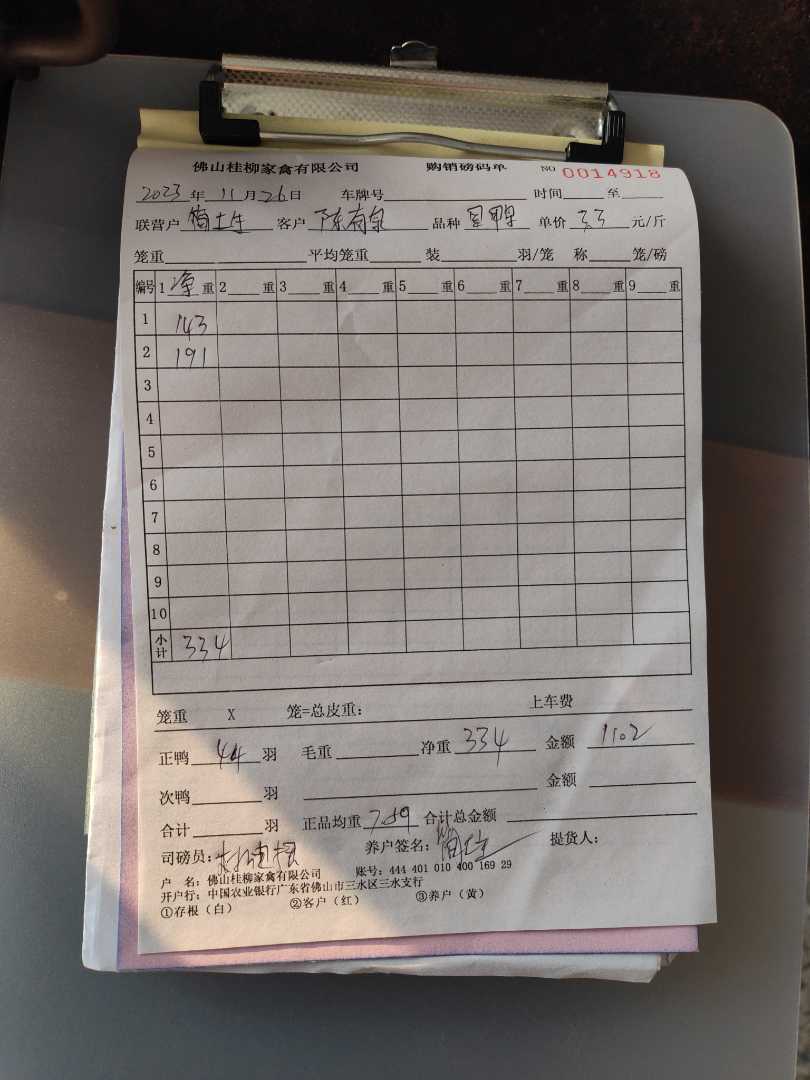 佛山桂柳家禽有限公司 购销磅码单 NO 0014918
2023年11月26日 车牌号 时间 至
联营户 客户 陈有泉 品种 单价 3.3 元/斤
笼重 平均笼重 装 羽/笼 称 笼/磅
编号 1 净 重 2 重 3 重 4 重 5 重 6 重 7 重 8 重 9 重
1 143
2 191
3
4
5
6
7
8
9
10
小计 334
笼重 X 笼=总皮重: 上车费
正鸭 44 羽 毛重 净重 334 金额 1102
次鸭 羽 金额
合计 羽 正品均重 7.59 合计总金额
司磅员: 养户签名: 提货人:
户 名: 佛山桂柳家禽有限公司 账号: 444 401 010 400 169 29
开户行: 中国农业银行广东省佛山市三水区三水支行
①存根(白) ②客户(红) ③养户(黄)